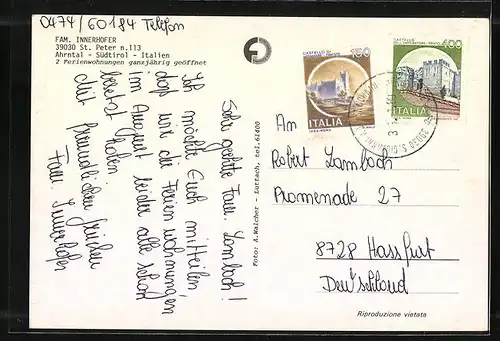 0474/60184 Telefon
FAM. INNERHOFER
39030 St. Peter n.113
Ahrntal - Südtirol - Italien
2 Ferienwohnungen ganzjährig geöffnet
Sehr geehrte Fam. Lambach!
Ich möchte Euch mitteilen
daß wir die Ferienwohnungen
im August leider alle schon
besetzt haben
Mit freundlichen Grüßen
Fam. Innerhofer
Foto: A.Walcher - Luttach, tel.61400
150
ITALIA
400
ITALIA
An
Robert Lambach
Promenade 27
8728 Hassfurt
Deutschland
Riproduzione vietata